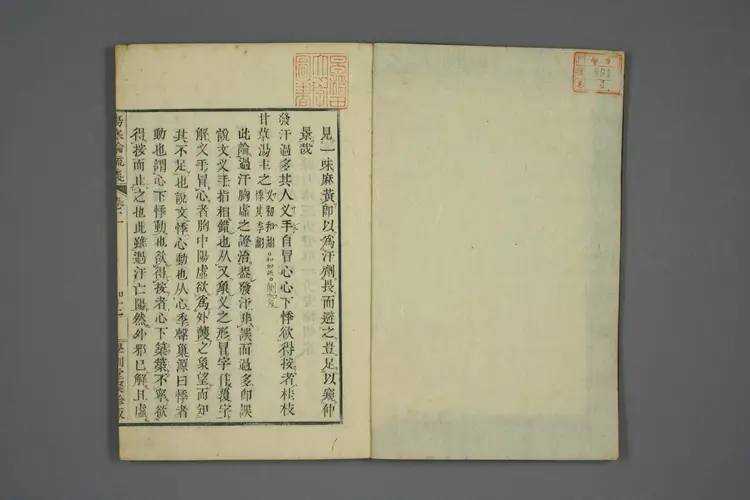 見一味麻黃即以爲汗劑長而避之豈足以窺仲
景哉
發汗過多其人叉手自冒心心下悸欲得按者桂枝
甘草湯主之
此論過汗胸虛之證治發汗非誤而過多即誤
說文叉手指相錯也从又象叉之形冒字作覆字
解叉手冒心者胸中陽虛欲爲外護之象望而知
其不足也說文悸心動也从心季聲巢源曰悸者
動也謂心下悸動也欲得按者心下築築不寧欲
得按而止之也此雖過汗亡陽然外邪已解且虛
傷寒論疏義 卷二